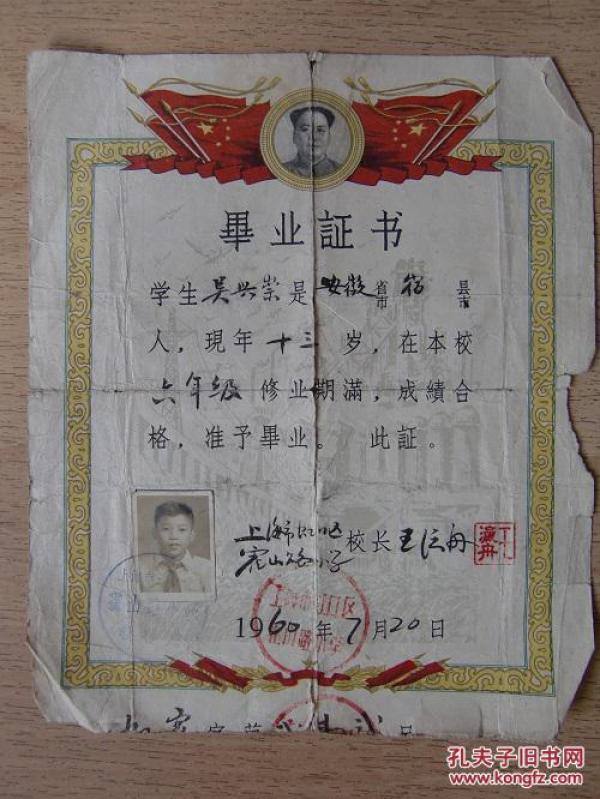 畢业証书
学生吴兴崇是安徽省市宿县市
人，現年十三岁，在本校
六年級修业期滿，成績合
格，准予畢业。此証。
上海市虹口区
霍山路小学校长王滬舟
1960年7月20日
孔夫子旧书网
www.kongfz.com